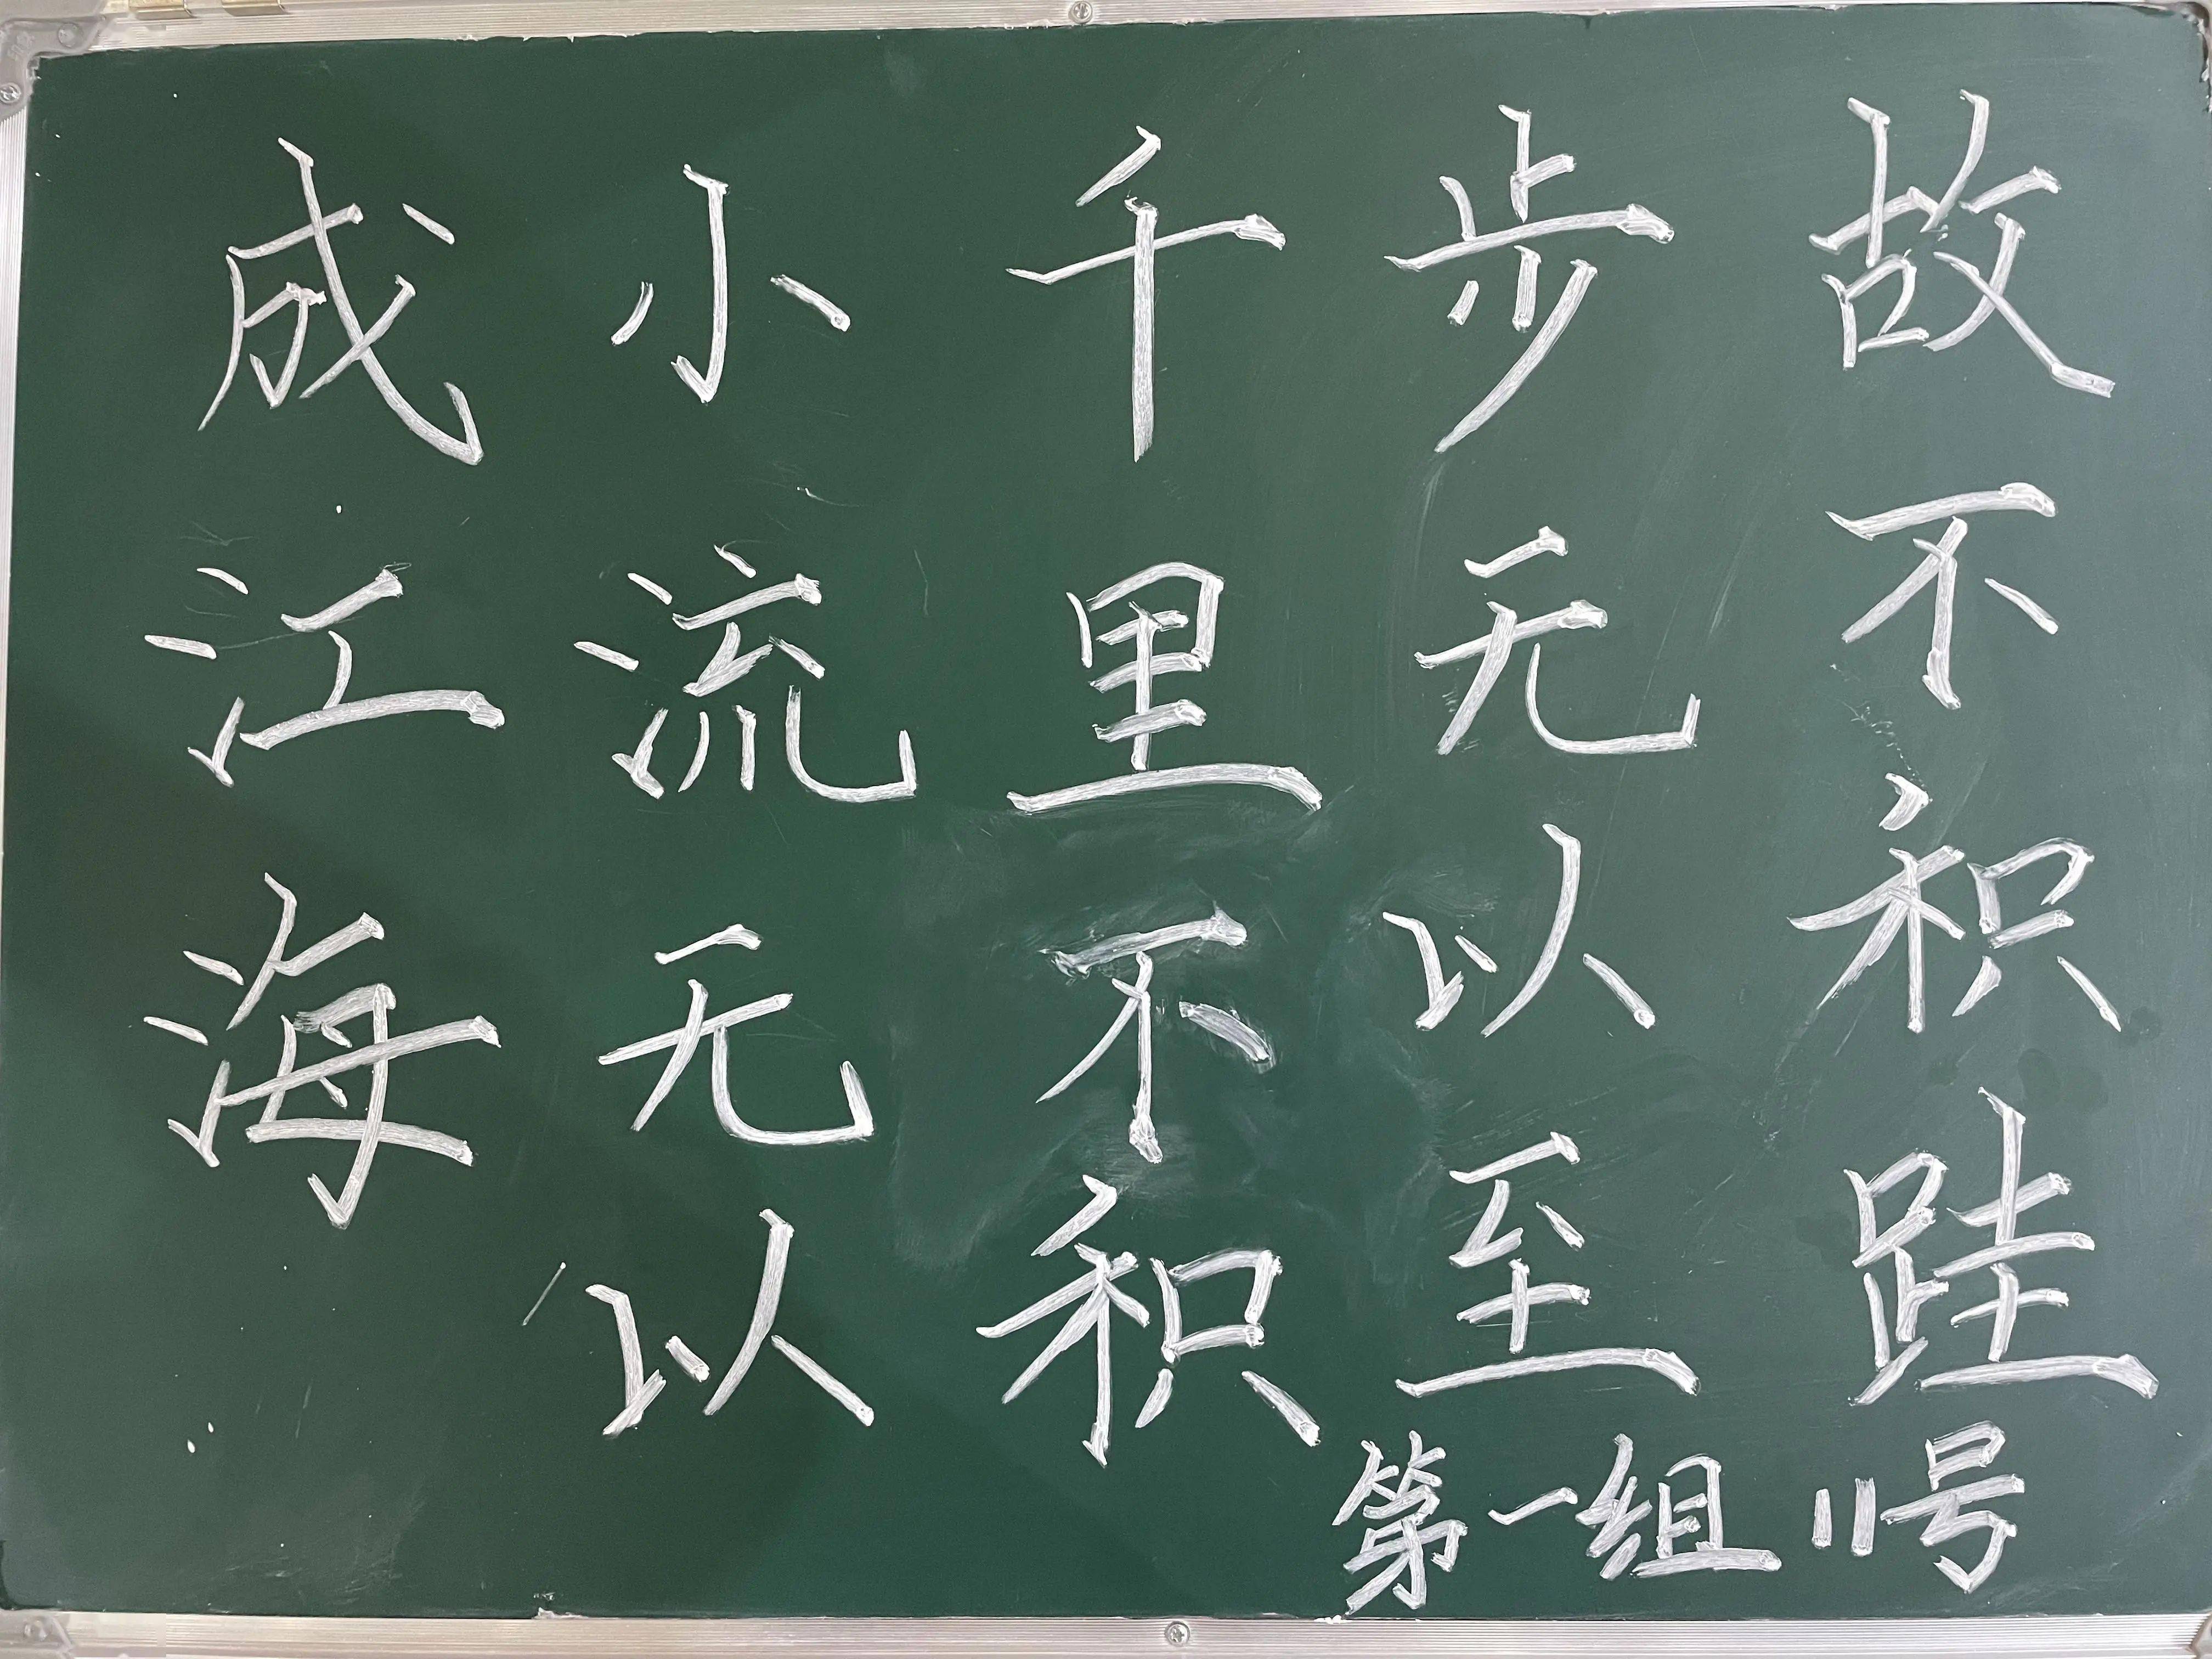 故不积跬
步无以至
千里不积
小流无以
成江海
第一组 11号